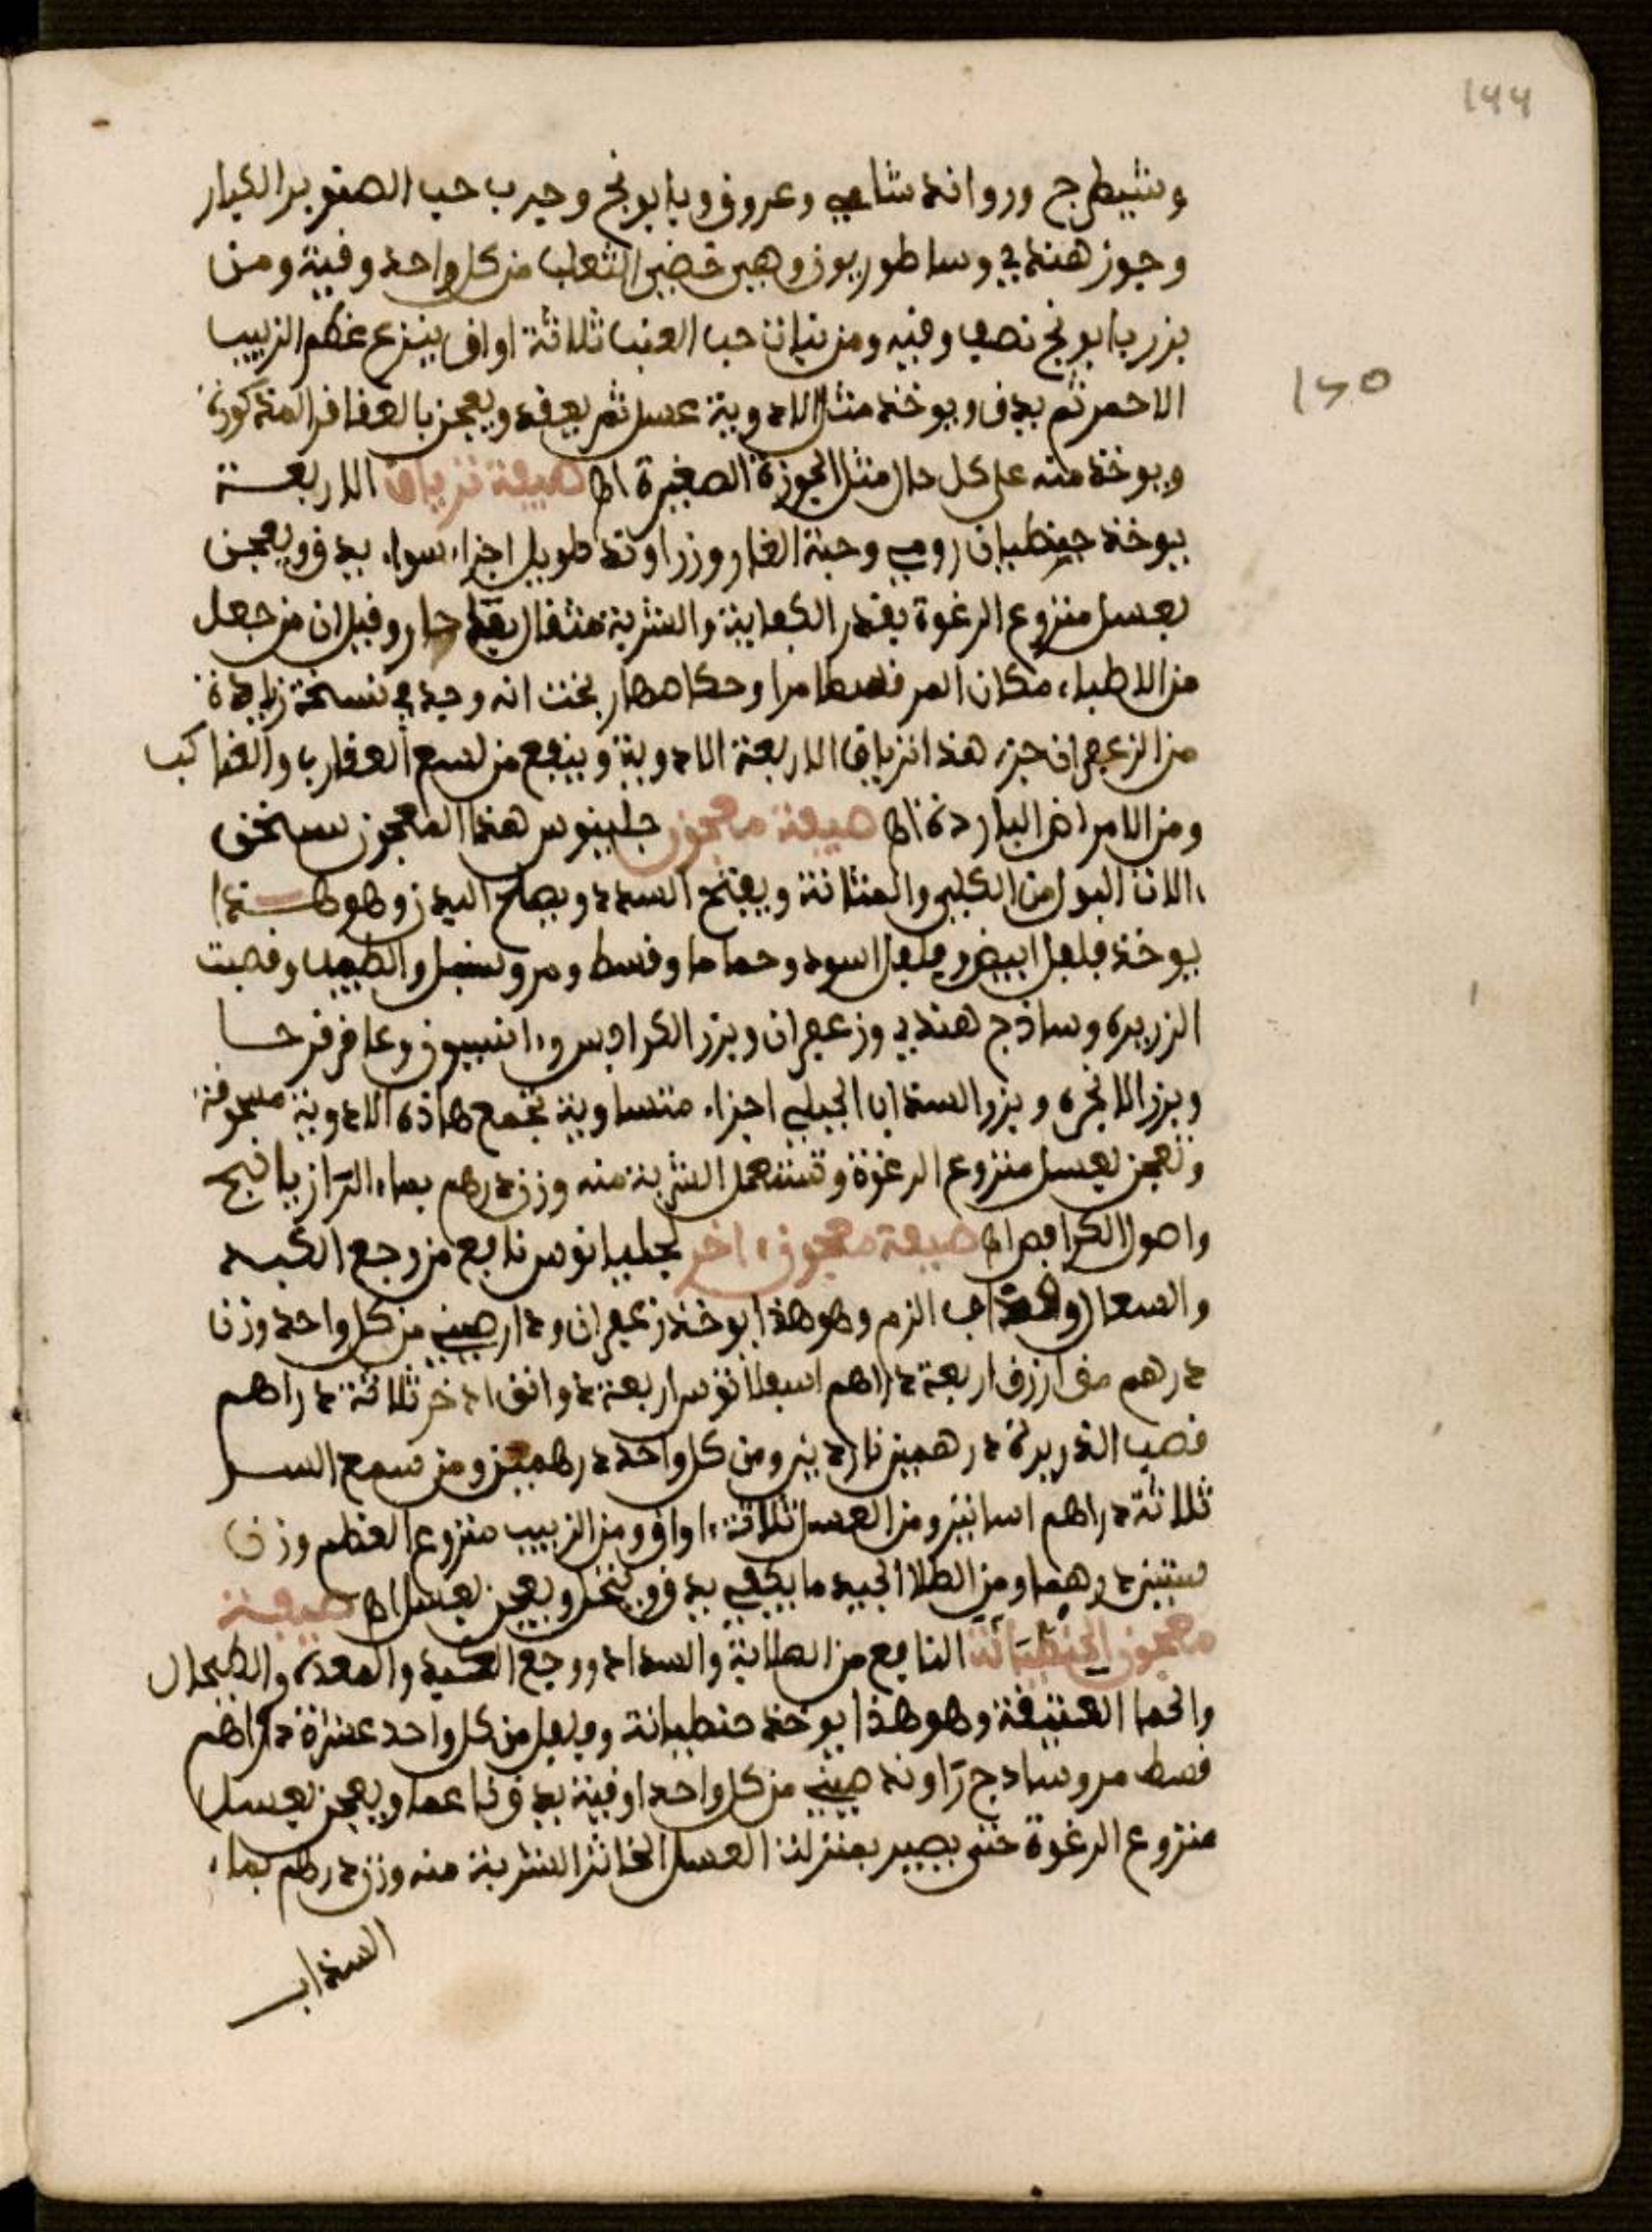 ١٩٩
وشيطرج وروانده شامي وعروق وبابونج وحرب حب الصنوبر الكبار
وجوز هندي وساطوريون وهي خصى الثعلب من كل واحد وقية ومن
بزر بابونج نصف وقيه ومن نبات حب العنب ثلاثة اواق ينزع عظم الزبيب
الاحمر ثم يدق ويوخذ مثل الادوية عسل ثم يعقد ويعجن بالعقاقر المذكورة
ويوخذ منه على كل حال مثل الجوزة الصغيرة اه صيفة ترياق الاربعة
يوخذ جنطيان رومي وحبة الغار وزراوند طويل اجزاء سواء يدق ويعجن
بعسل منزوع الرغوة بقدر الكفاية والشربة مثقال بماء حار وقيل ان من جعل
من الاطباء مكان المر قسطا مرا وحكا صهاربخت انه وجد في نسخة زيادة
من الزعفران جزء هذا ترياق الاربعة الادوية وينفع من لسع العقارب والعناكب
ومن الامراض الباردة اه صيفة معجون جلينوس هذا المعجون يسخن
الات البول من الكلى والمثانة ويفتح السدد ويصلح البدن وهو هذا
يوخذ فلفل ابيض وفلفل اسود وحماما وقسط ومر وسنبل الطيب وقصب
الزريره وساذج هندي وزعفران وبزر الكرافس وانيسون وعاقرقرحا
وبزر الانجره وبزر السذاب الجبلي اجزاء متساوية تجمع هاذه الادوية مسحوقة
وتعجن بعسل منزوع الرغوة وتستعمل الشربة منه وزن درهم بماء الرازيانج
واصول الكرافص اه صيفة معجون اخر لجليانوس نافع من وجع الكبد
والسعال وقذاف الزم وهو هذا يوخذ زعفران ودار صيني من كل واحد وزن
درهم مقل ازرق اربعة دراهم اسبلانوس اربعة دوانق اذخر ثلاثة دراهم
قصب الذريرة درهمين ناردين ومن كل واحد درهمين ومن سمع السر
ثلاثة دراهم اسانيز ومن العسل ثلاثة اواق ومن الزبيب منزوع العظم وزن
ستين درهما ومن الطلا الجيد ما يكفي يدق وينخل ويعجن بعسل اه صيفة
معجون الجنطيانة النافع من الصلابة والسداد ووجع الكبد والمعدة والطحال
والحما العتيقة وهو هذا يوخذ جنطيانة وفلفل من كل واحد عشرة دراهم
قسط مر وسادج راوند صيني من كل واحد اوقية يدق ناعما ويعجن بعسل
منزوع الرغوة حتى يصير بمنزلة العسل الخاثر الشربة منه وزن درهم بماء
السذاب
١٢٥